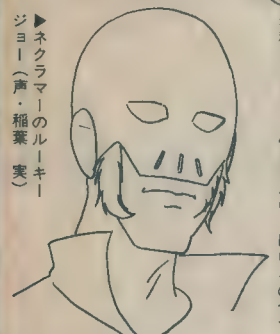 ▶ネクラマーのルーキー
ジョー（声・稲葉　実）